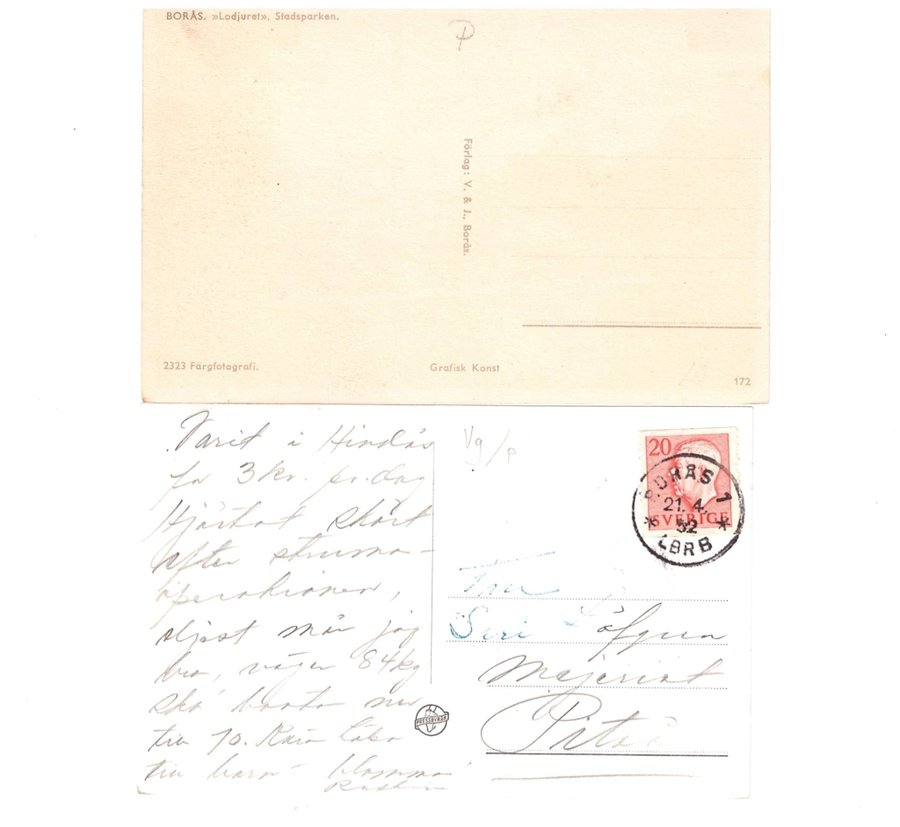 BORÅS. »Lodjuret», Stadsparken.
P
Förlag: V. & J., Borås.
2323 Färgfotografi.
Grafisk Konst
172
Varit i Hindås
för 3 kr. pr. dag
Hjärtat skört
efter struma-
operationen,
mår jag
bra, väger 84 kg
ska banta ner
till 70.
till
Vg/P
20
SVERIGE
BORÅS 1
21. 4.
52
LBRB
Fru
Siri Löfgren
Mejeriet
Piteå
PRESSBYRÅN